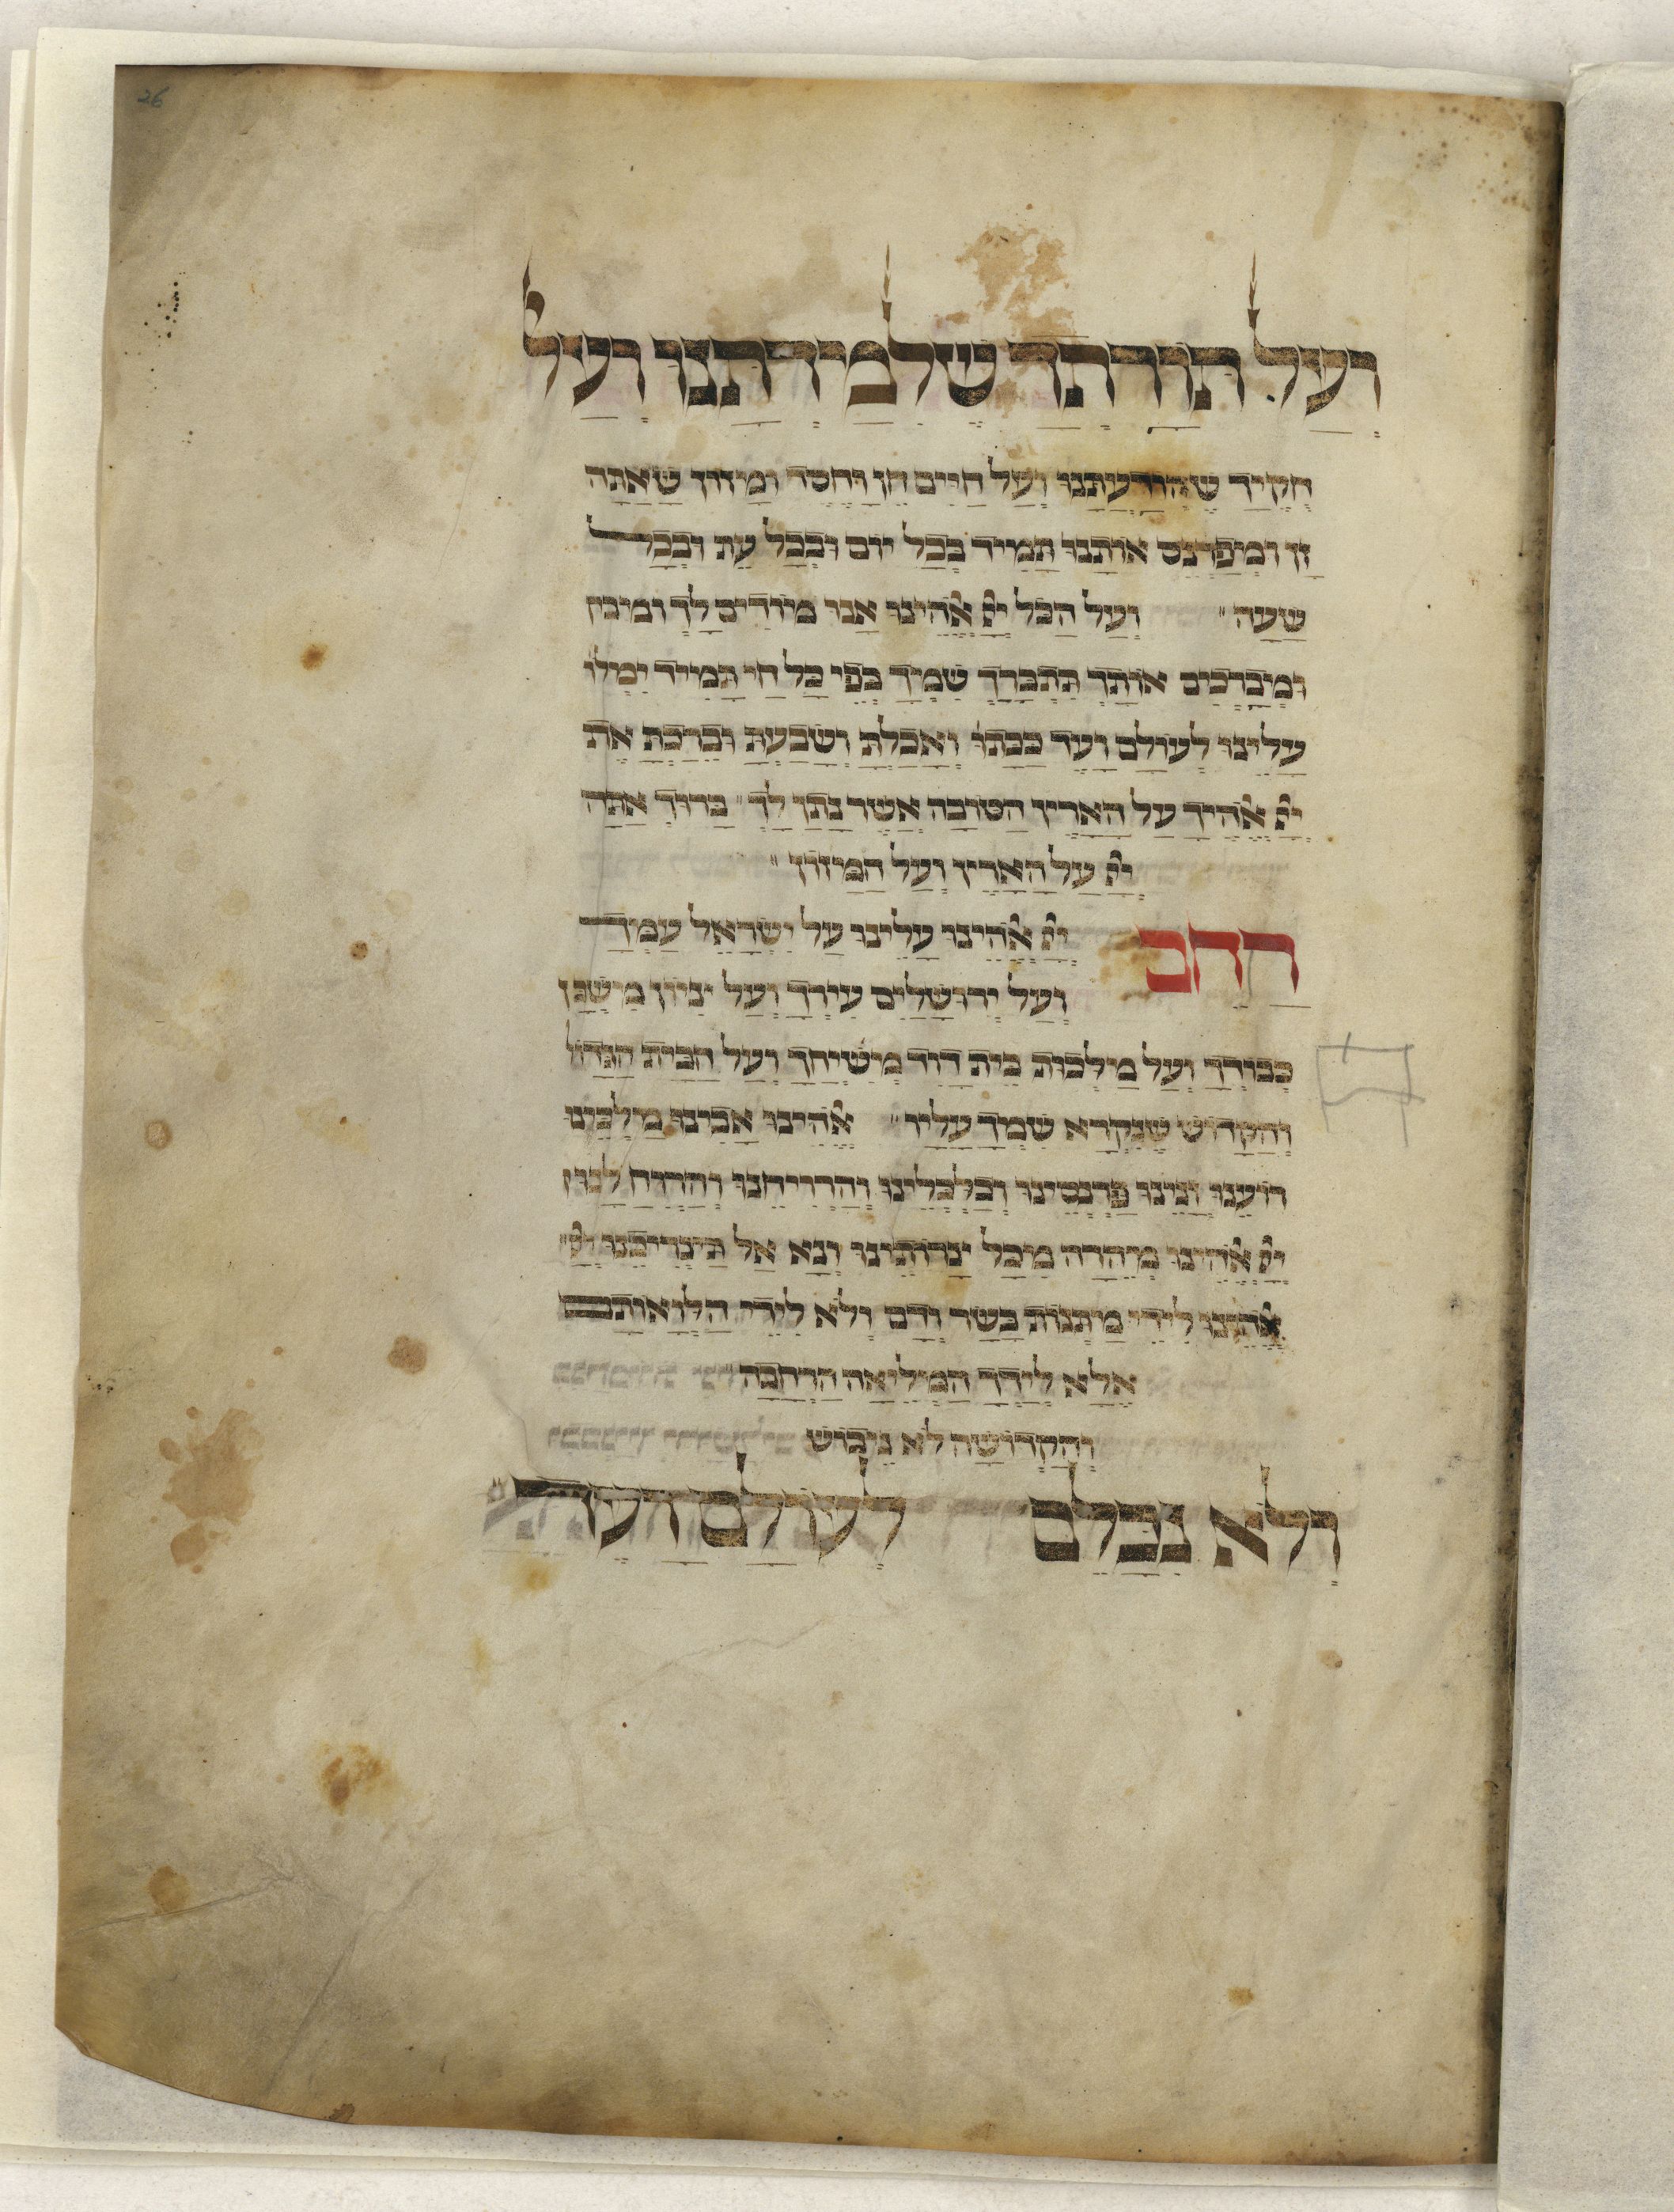 26
וְעַל תּוֹרָתָךְ שֶׁלִּמַּדְתָּנוּ וְעַל
חֻקֶּיךָ שֶׁהוֹדַעְתָּנוּ וְעַל חַיִּים חֵן וָחֶסֶד וּמָזוֹן שָׁאַתָּה
זָן וּמְפַרְנֵס אוֹתָנוּ תָּמִיד בְּכָל יוֹם וּבְכָל עֵת וּבְכָל
שָׁעָה וְעַל הַכֹּל יְיָ אֱלֹהֵינוּ אָנוּ מוֹדִים לָךְ
וּמְבָרְכִים אוֹתָךְ תִּתְבָּרַךְ שִׁמְךָ בְּפִי כָל חַי תָּמִיד
עָלֵינוּ לְעוֹלָם וָעֶד כַּכָּתוּ וְאָכַלְתָּ וְשָׂבָעְתָּ וּבֵרַכְתָּ אֶת
יְיָ אֱלֹהֶיךָ עַל הָאָרֶץ הַטּוֹבָה אֲשֶׁר נָתַן לָךְ בָּרוּךְ אַתָּה
יְיָ עַל הָאָרֶץ וְעַל הַמָּזוֹן
רַחֵם יְיָ אֱלֹהֵינוּ עָלֵינוּ עַל יִשְׂרָאֵל עַמְּךָ
וְעַל יְרוּשָׁלַיִם עִירָךְ וְעַל צִיּוֹן מִשְׁכַּן
כְּבוֹדָךְ וְעַל מַלְכוּת בֵּית דָּוִד מְשִׁיחָךְ וְעַל הַבַּיִת הַגָּדוֹל
וְהַקָּדוֹשׁ שֶׁנִּקְרָא שִׁמְךָ עָלָיו אֱלֹהֵינוּ אָבִינוּ מַלְכֵּינוּ
רוֹעֵנוּ זוּנֵינוּ פַּרְנְסֵינוּ וְכַלְכְּלֵינוּ וְהַרְוִיחֵנוּ וְהַרְוַח לָנוּ
יְיָ אֱלֹהֵינוּ מְהֵרָה מִכָּל צָרוֹתֵינוּ וְנָא אַל תַּצְרִיכֵנוּ יְיָ
אֱלֹהֵינוּ לִידֵי מַתְּנוֹת בָּשָׂר וָדָם וְלֹא לִידֵי הַלְוָאוֹתָם
אֶלָּא לְיָדְךָ הַמְּלֵיאָה הָרְחָבָה
וְהַקְּדוֹשָׁה לֹא נֵיבוֹשׁ
וְלֹא נִכָּלֵם לְעוֹלָם וָעֶד